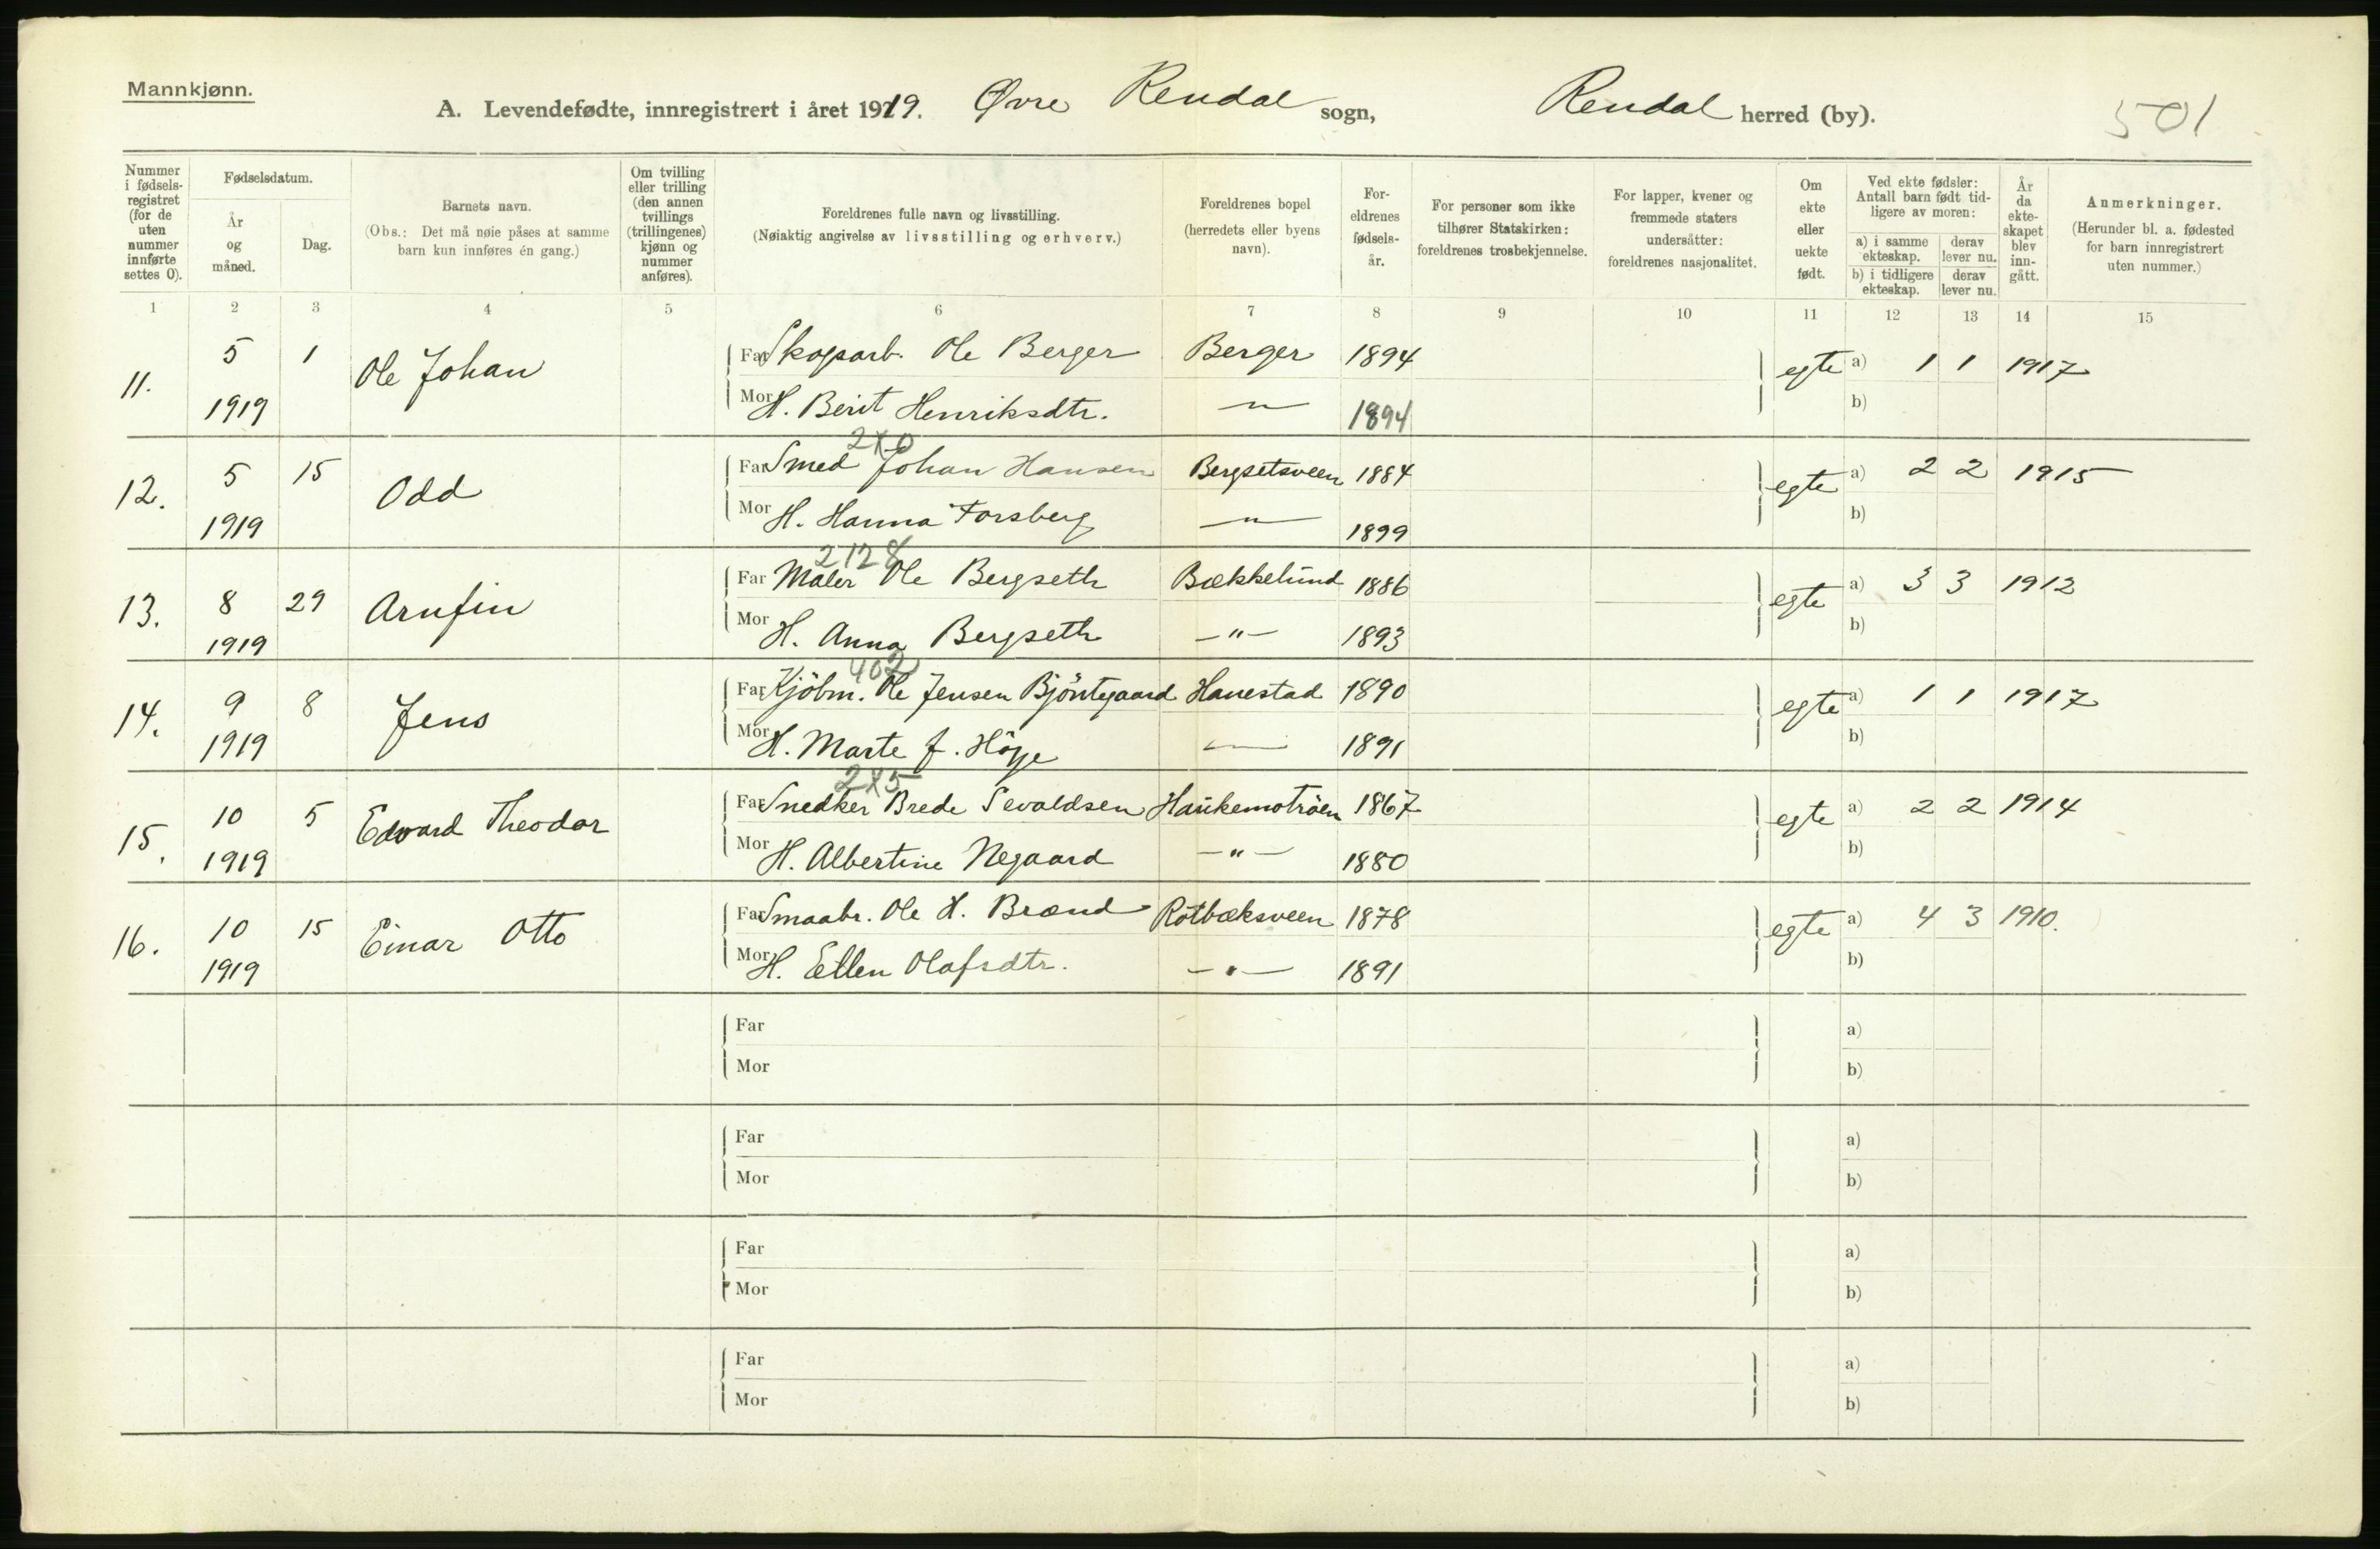 Mannkjønn.
A. Levendefødte, innregistrert i året 1919. Øvre Rendal sogn, Rendal herred (by).
501
Nummer i fødsels-registret (for de uten nummer innførte settes 0).
Fødselsdatum.
År og måned.
Dag.
Barnets navn.
(Obs.: Det må nøie påses at samme barn kun innføres én gang.)
Om tvilling eller trilling (den annen tvillings (trillingenes) kjønn og nummer anføres).
Foreldrenes fulle navn og livsstilling.
(Nøiaktig angivelse av livsstilling og erhverv.)
Foreldrenes bopel (herredets eller byens navn).
For-eldrenes fødsels-år.
For personer som ikke tilhører Statskirken: foreldrenes trosbekjennelse.
For lapper, kvener og fremmede staters undersåtter: foreldrenes nasjonalitet.
Om ekte eller uekte født.
Ved ekte fødsler: Antall barn født tid-ligere av moren:
a) i samme ekteskap.
derav lever nu.
b) i tidligere ekteskap.
derav lever nu.
År da ekte-skapet blev inn-gått.
Anmerkninger.
(Herunder bl. a. fødested for barn innregistrert uten nummer.)
1 2 3 4 5 6 7 8 9 10 11 12 13 14 15
11. 5 1 Ole Johan Far Skogsarb. Ole Berger Berger 1894 egte a) 1 1 1917
1919 Mor H. Berit Henriksdtr. —"— 1894 b)
2x0
12. 5 15 Odd Far Smed Johan Hansen Bergsetsveen 1884 egte a) 2 2 1915
1919 Mor H. Hanna Forsberg —"— 1899 b)
2128
13. 8 29 Arnfin Far Maler Ole Bergseth Bækkelund 1886 egte a) 3 3 1912
1919 Mor H. Anna Bergseth —"— 1893 b)
402
14. 9 8 Jens Far Kjöbm. Ole Jensen Bjöntegaard Hanestad 1890 egte a) 1 1 1917
1919 Mor H. Marte f. Höye —"— 1891 b)
2x5
15. 10 5 Edvard Theodor Far Snedker Brede Sevaldsen Haukemotröen 1867 egte a) 2 2 1914
1919 Mor H. Albertine Negaard —"— 1880 b)
16. 10 15 Einar Otto Far Smaabr. Ole H. Brænd Rötbæksveen 1878 egte a) 4 3 1910.
1919 Mor H. Ellen Olafsdtr. —"— 1891 b)
Far a)
Mor b)
Far a)
Mor b)
Far a)
Mor b)
Far a)
Mor b)